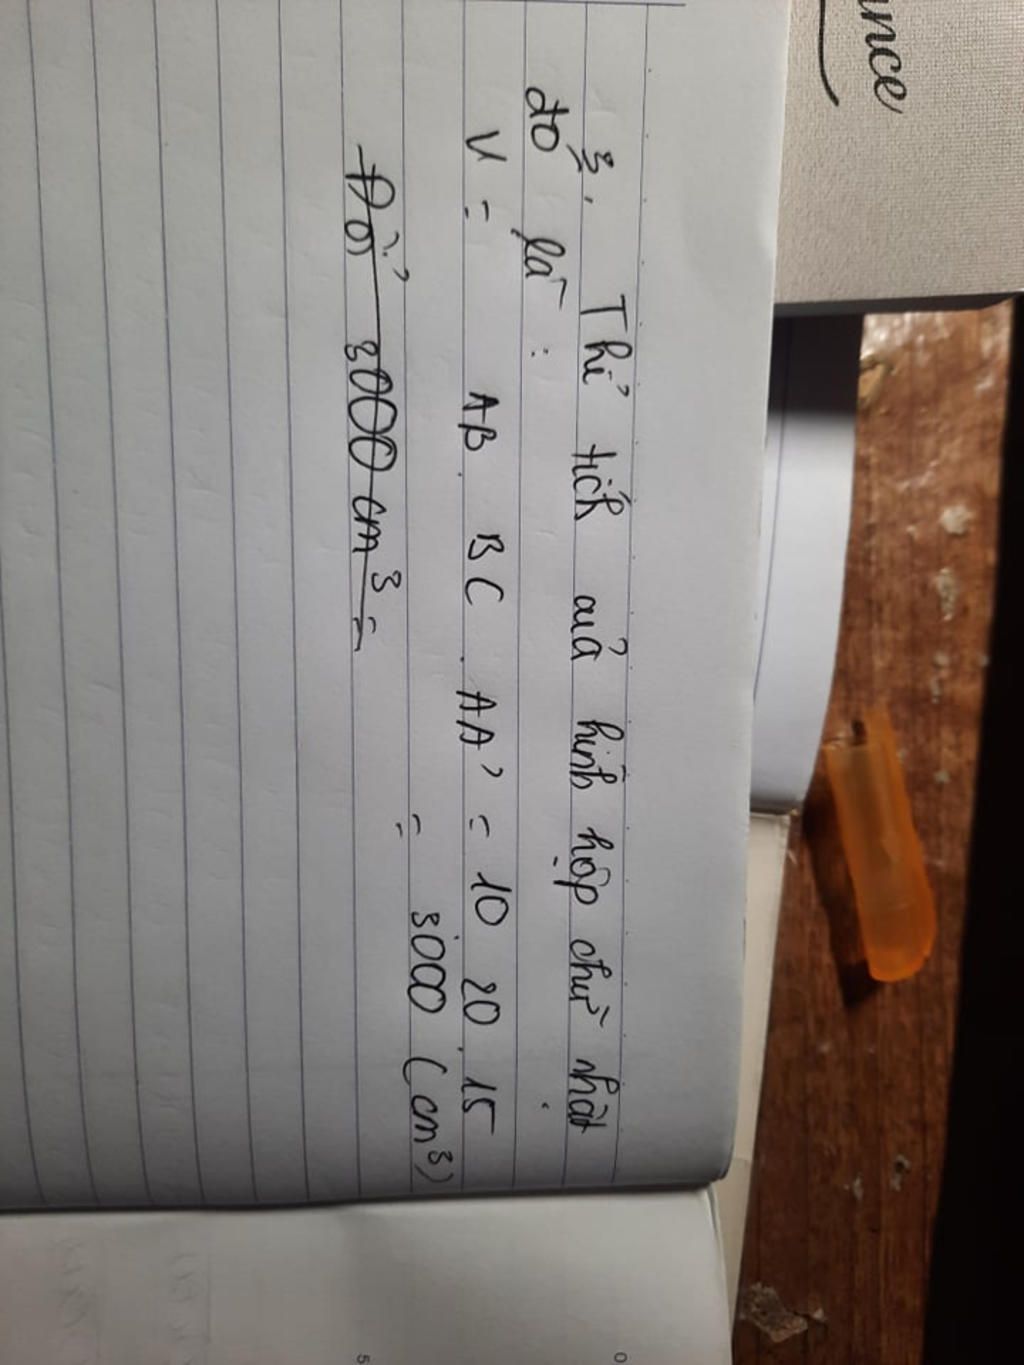 ance
3, Thể tích của hình hộp chữ nhật
đó là :
V = AB . BC . AA' = 10 20 . 15
= 3000 (cm³)
Đổi 3000 cm³ =
0
5